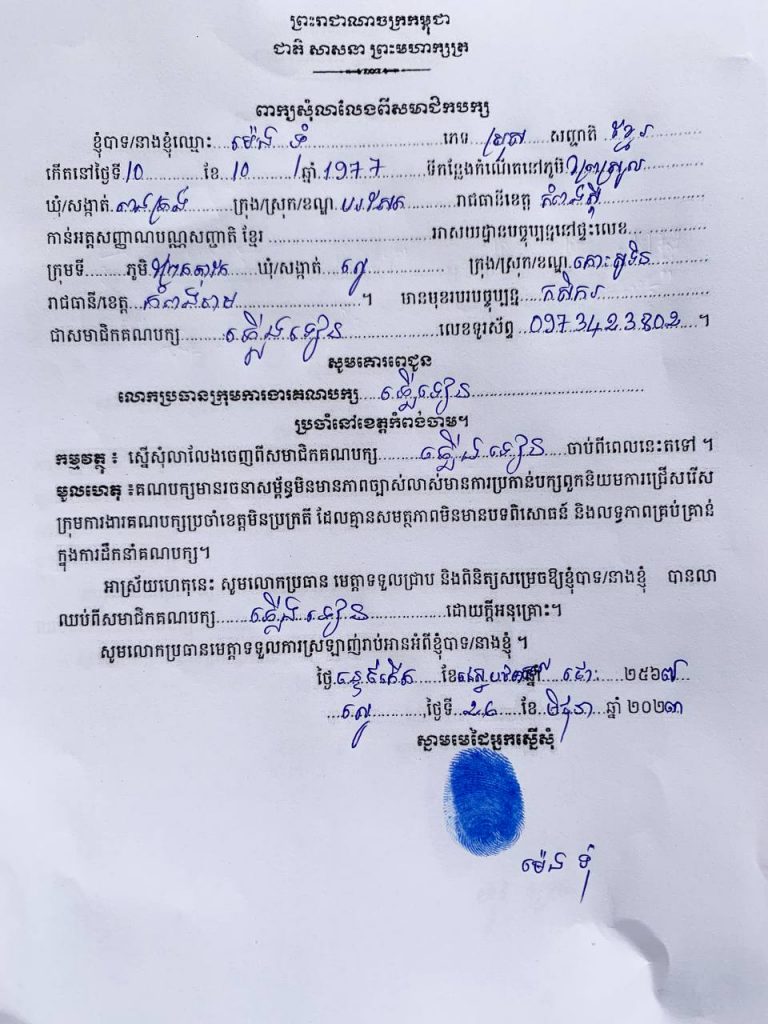 ព្រះរាជាណាចក្រកម្ពុជា
ជាតិ សាសនា ព្រះមហាក្សត្រ
ពាក្យសុំលាលែងពីសមាជិកបក្ស
ខ្ញុំបាទ/នាងខ្ញុំឈ្មោះ ម៉េង ទុំ ភេទ ស្រី សញ្ជាតិ ខ្មែរ
កើតនៅថ្ងៃទី 10 ខែ 10 ឆ្នាំ 1977 ទីកន្លែងកំណើតនៅភូមិ
ឃុំ/សង្កាត់ ក្រុង/ស្រុក/ខណ្ឌ រាជធានីខេត្ត កំពង់ស្ពឺ
កាន់អត្តសញ្ញាណបណ្ណសញ្ជាតិ ខ្មែរ អាសយដ្ឋានបច្ចុប្បន្ននៅផ្ទះលេខ
ក្រុមទី ភូមិ ឃុំ/សង្កាត់ ល្វេ ក្រុង/ស្រុក/ខណ្ឌ កោះសូទិន
រាជធានី/ខេត្ត កំពង់ចាម ។ មានមុខរបរបច្ចុប្បន្ន កសិករ
ជាសមាជិកគណបក្ស ភ្លើងទៀន លេខទូរស័ព្ទ 097 342 3 802 ។
សូមគោរពជូន
លោកប្រធានក្រុមការងារគណបក្ស ភ្លើងទៀន
ប្រចាំនៅខេត្តកំពង់ចាម។
កម្មវត្ថុ ៖ ស្នើសុំលាលែងចេញពីសមាជិកគណបក្ស ភ្លើងទៀន ចាប់ពីពេលនេះតទៅ ។
មូលហេតុ ៖គណបក្សមានរចនាសម្ព័ន្ធមិនមានភាពច្បាស់លាស់មានការប្រកាន់បក្សពួកនិយមការជ្រើសរើស
ក្រុមការងារគណបក្សប្រចាំខេត្តមិនប្រក្រតី ដែលគ្មានសមត្ថភាពមិនមានបទពិសោធន៍ និងលទ្ធភាពគ្រប់គ្រាន់
ក្នុងការដឹកនាំគណបក្ស។
អាស្រ័យហេតុនេះ សូមលោកប្រធាន មេត្តាទទួលជ្រាប និងពិនិត្យសម្រេចឱ្យខ្ញុំបាទ/នាងខ្ញុំ បានលា
ឈប់ពីសមាជិកគណបក្ស ភ្លើងទៀន ដោយក្តីអនុគ្រោះ។
សូមលោកប្រធានមេត្តាទទួលការស្រឡាញ់រាប់អានអំពីខ្ញុំបាទ/នាងខ្ញុំ ។
ថ្ងៃ ខែ ឆ្នាំ ថោះ ២៥៦៧
ល្វេ ,ថ្ងៃទី 26 ខែ មិថុនា ឆ្នាំ ២០២៣
ស្នាមមេដៃអ្នកស្នើសុំ
ម៉េង ទុំ